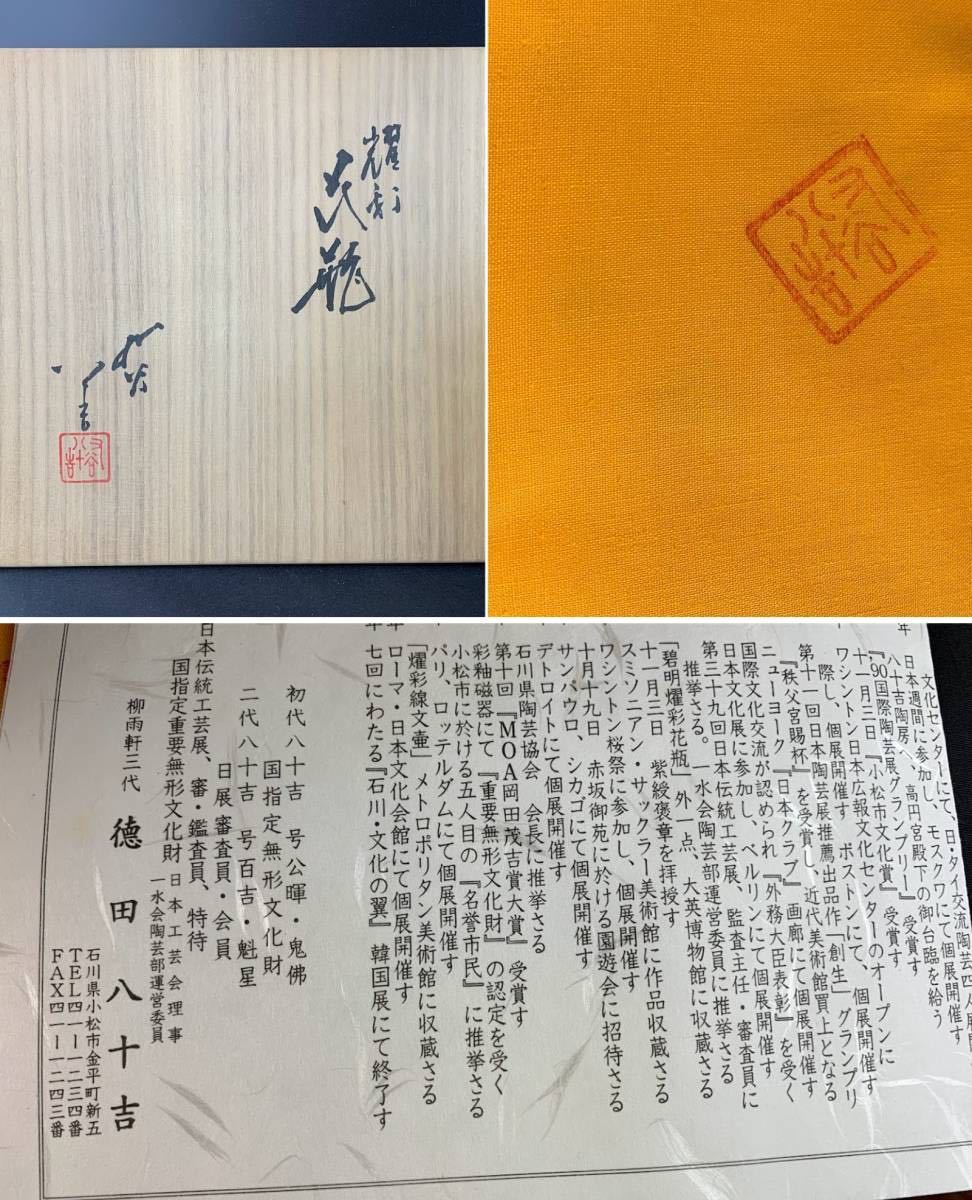 耀彩
花瓶
九谷
八十吉
九谷
八十吉
九谷
八十吉
文化センターにて、日・タイ交流陶芸四人展
日本週間に参加し、モスクワにて個展開催す
八十吉陶房へ、高円宮殿下の御台臨を給う
『90国際陶芸展グランプリー』受賞す
十一月三日『小松市文化賞』受賞す
ワシントン日本広報文化センターのオープンに
際し、個展開催す ボストンにて、個展開催す
第十一回日本陶芸展推薦出品作「創生」グランプリ
『秩父宮賜杯』を受賞し、近代美術館買上となる
ニューヨーク『日本クラブ』画廊にて個展開催す
国際文化交流が認められ『外務大臣表彰』を受く
日本文化展に参加し、ベルリンにて個展開催す
第三十九回日本伝統工芸展、監査主任・審査員に
推挙さる。一水会陶芸部運営委員に推挙さる
「碧明燿彩花瓶」外一点、大英博物館に収蔵さる
十一月三日 紫綬褒章を拝授す
スミソニアン・サックラー美術館に作品収蔵さる
ワシントン桜祭に参加し、個展開催す
十月十九日 赤坂御苑に於ける園遊会に招待さる
サンパウロ、シカゴにて個展開催す
デトロイトにて個展開催す
石川県陶芸協会 会長に推挙さる
第十回『MOA岡田茂吉賞大賞』受賞す
彩釉磁器にて『重要無形文化財』の認定を受く
小松市に於ける五人目の『名誉市民』に推挙さる
パリ、ロッテルダムにて個展開催す
「燿彩線文壷」メトロポリタン美術館に収蔵さる
ローマ・日本文化会館にて個展開催す
七回にわたる『石川・文化の翼』韓国展にて終了す
初代八十吉 号公暉・鬼佛
国指定無形文化財
二代八十吉 号百吉・魁星
日展審査員・会員
日本伝統工芸展、審・鑑査員、特待
国指定重要無形文化財 日本工芸会理事
一水会陶芸部運営委員
柳雨軒三代 德田八十吉
石川県小松市金平町新五
TEL四一ー一二三四番
FAX四一ー一二四三番